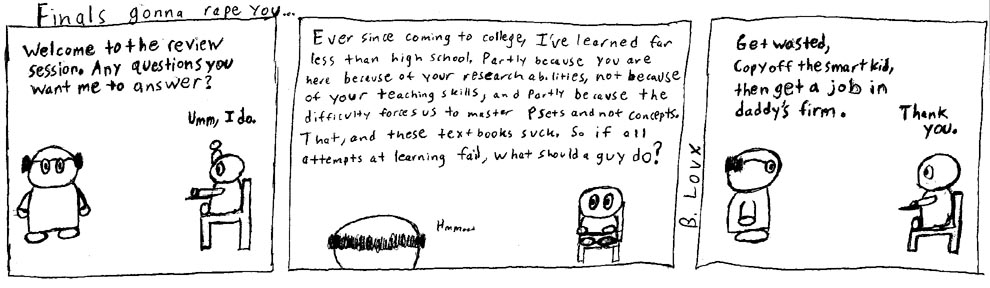 Finals gonna rape you...
Welcome to the review
session. Any questions you
want me to answer?
Umm, I do.
Ever since coming to college, I've learned far
less than high school. Partly because you are
here because of your research abilities, not because
of your teaching skills, and partly because the
difficulty forces us to master Psets and not concepts.
That, and these textbooks suck. So if all
attempts at learning fail, what should a guy do?
Hmm...
B. Loux
Get wasted,
Copy off the smart kid,
then get a job in
daddy's firm.
Thank
you.